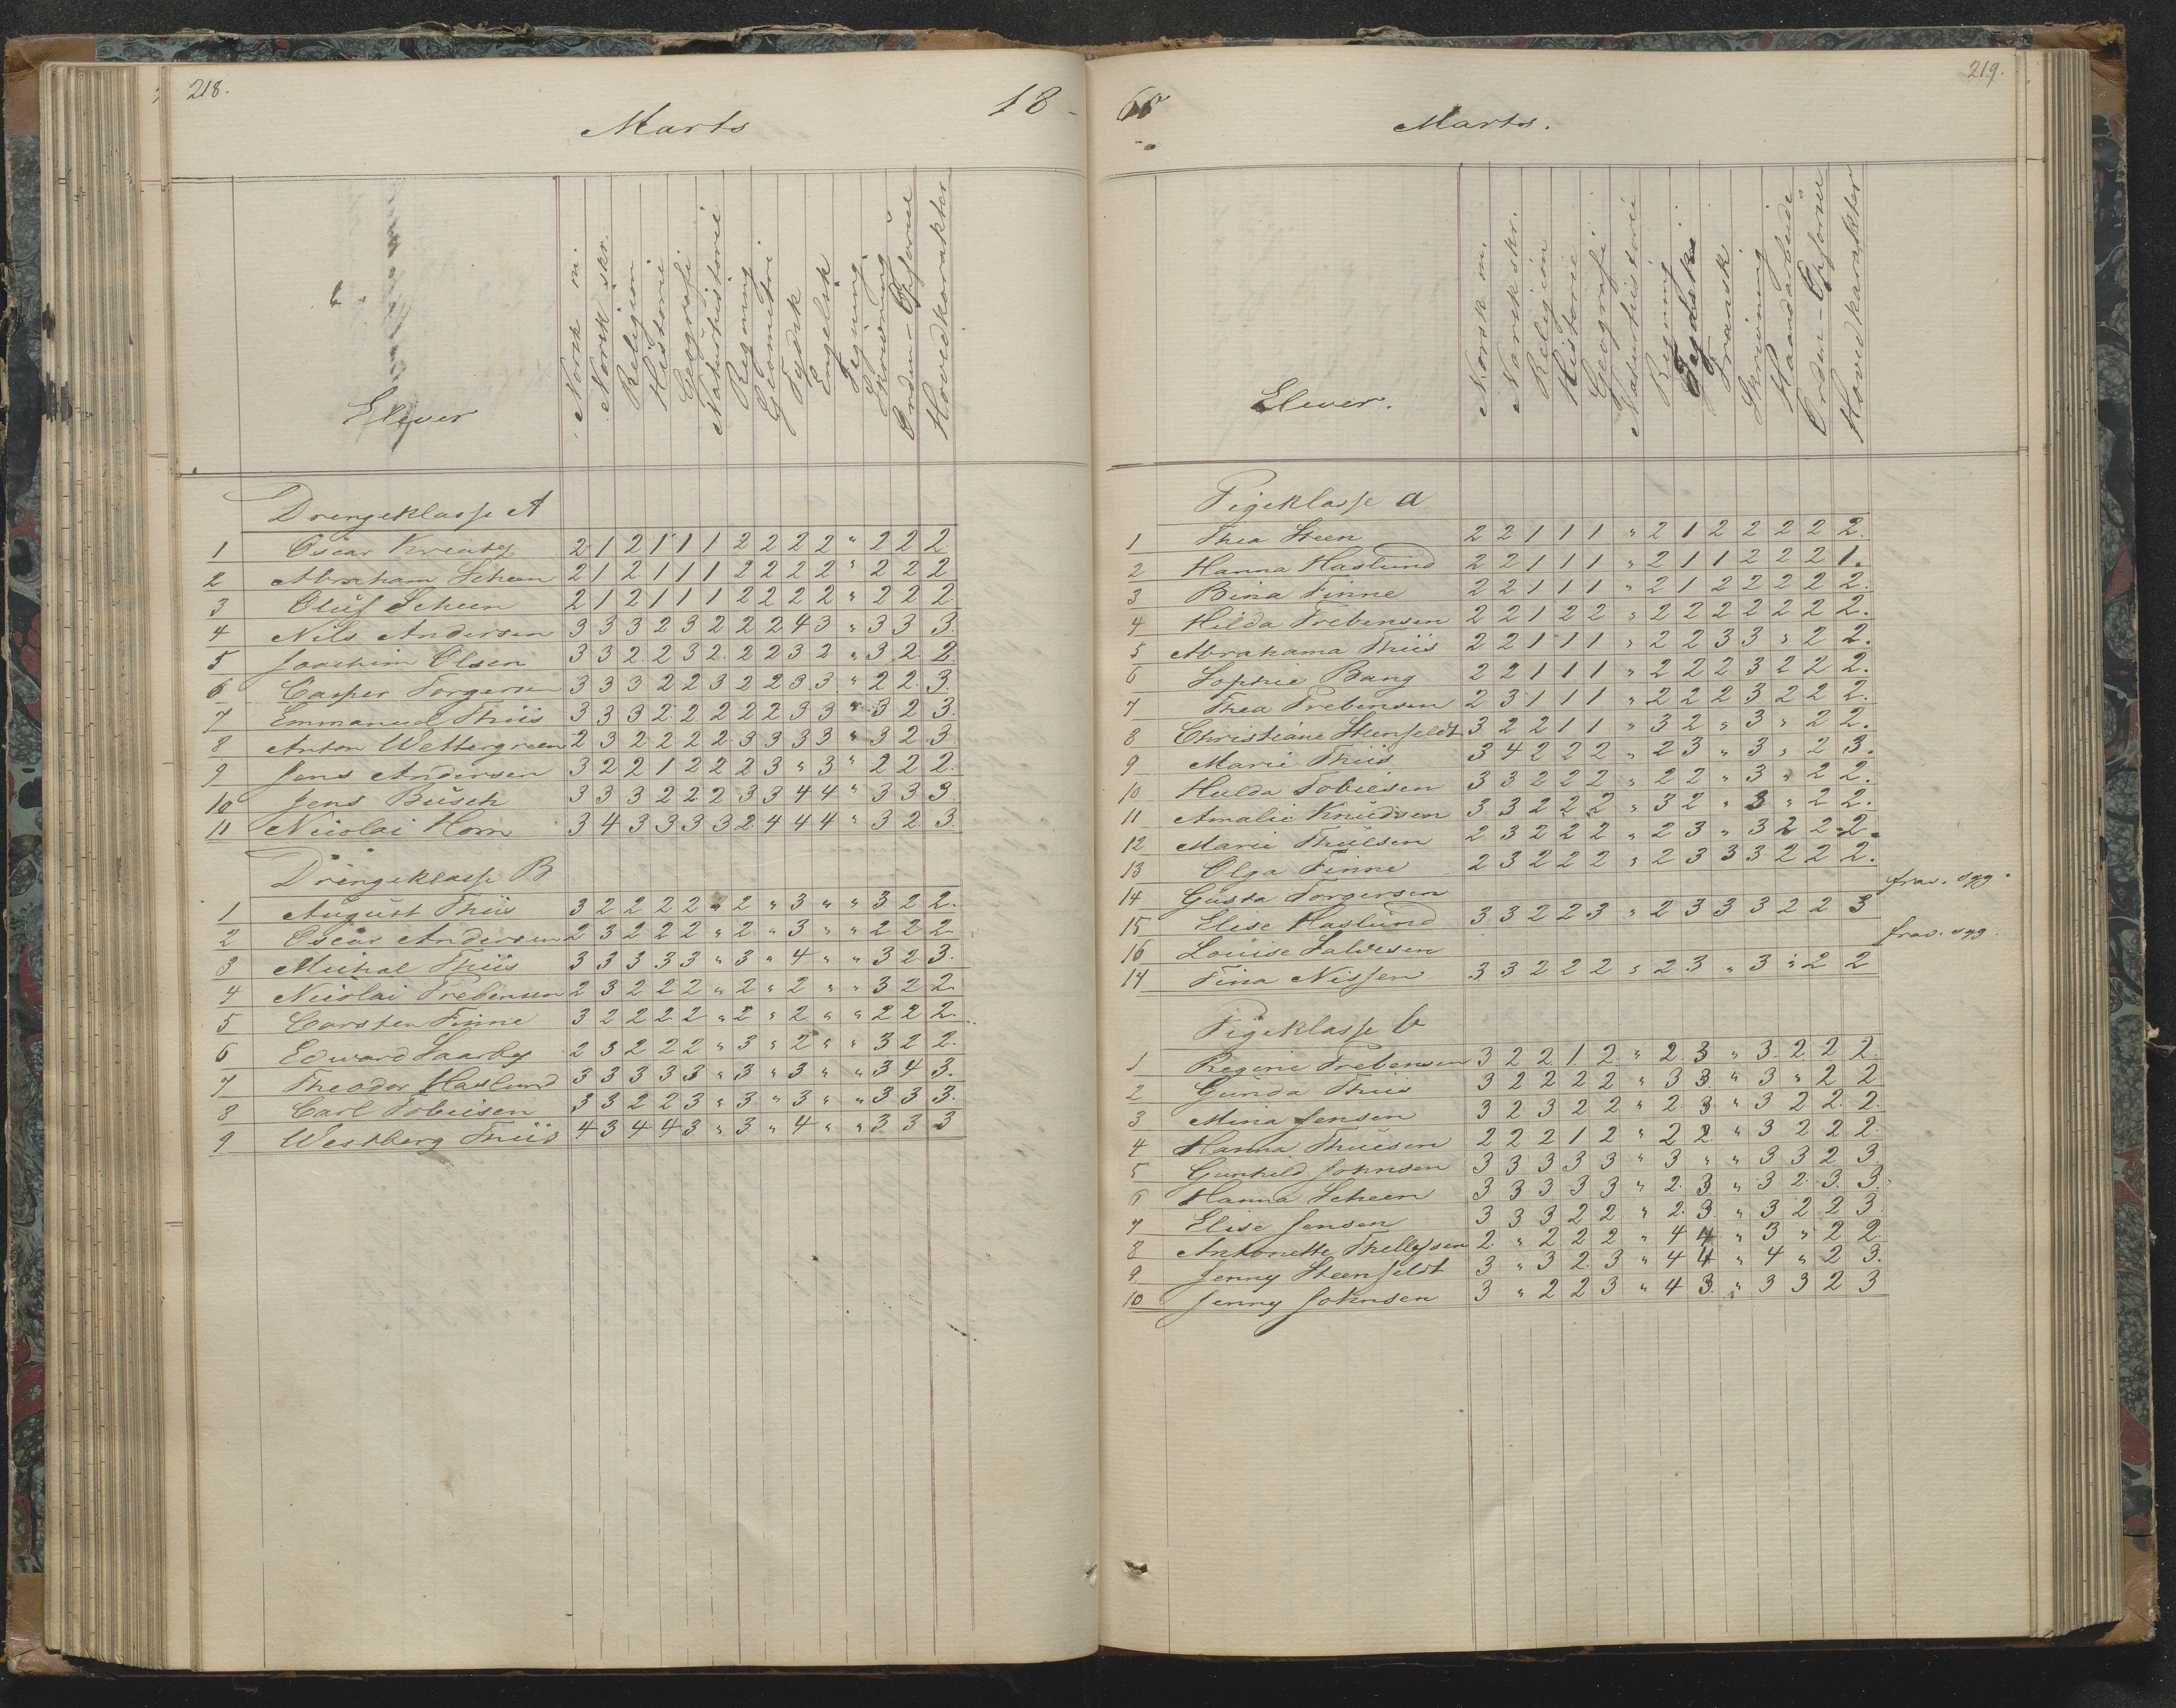 218.
18-
Marts
Elever
Norsk m.
Norsk skr.
Religion
Historie
Geografi
Naturhistorie
Regning
Geometri
Tydsk
Engelsk
Tegning
Skrivning
Orden-Opførsel
Hovedkarakter
Drengeklasse A
1 Oscar 2 1 2 1 1 1 2 2 2 2 " 2 2 2
2 Abraham Scheen 2 1 2 1 1 1 2 2 2 2 " 2 2 2
3 Oluf Scheen 2 1 2 1 1 1 2 2 2 2 " 2 2 2.
4 Nils Andersen 3 3 3 2 3 2 2 2 4 3 " 3 3 3.
5 Joachim Olsen 3 3 2 2 3 2 2 2 3 2 " 3 2 2
6 Casper Torgersen 3 3 3 2 2 3 2 2 3 3 " 2 2 3.
7 Emmanuel Thiis 3 3 3 2 2 2 2 2 3 3 " 3 2 3.
8 Anton Wettergreen 2 3 2 2 2 2 3 3 3 3 " 3 2 3
9 Jens Andersen 3 2 2 1 2 2 2 3 " 3 " 2 2 2.
10 Jens Busch 3 3 3 2 2 2 3 3 4 4 " 3 3 3
11 Nicolai Horn 3 4 3 3 3 3 2 4 4 4 " 3 2 3
Drengeklasse B
1 August Thiis 3 2 2 2 2 " 2 " 3 " " 3 2 2.
2 Oscar Andersen 2 3 2 2 2 " 2 " 3 " " 2 2 2
3 Michal Thiis 3 3 3 3 3 " 3 " 4 " " 3 2 3.
4 Nicolai Trebensen 2 3 2 2 2 " 2 " 2 " " 3 2 2
5 Carsten Finne 3 2 2 2 2 " 2 " 2 " " 2 2 2.
6 Edward 2 3 2 2 2 " 3 " 2 " " 3 2 2.
7 Theodor Haslund 3 3 3 3 3 " 3 " 3 " " 3 4 3.
8 Carl Tobiisen 3 3 2 2 3 " 3 " 3 " " 3 3 3.
9 Westberg Thiis 4 3 4 4 3 " 3 " 4 " " 3 3 3
219.
Marts.
Elever.
Norsk m.
Norsk skr.
Religion
Historie
Geografi
Naturhistorie
Regning
Fransk
Skrivning
Haandarbeide
Orden-Opførsel
Hovedkarakter
Pigeklasse a
1 Thea Steen 2 2 1 1 1 " 2 1 2 2 2 2 2.
2 Hanna Haslund 2 2 1 1 1 " 2 1 1 2 2 2 1.
3 Bina Finne 2 2 1 1 1 " 2 1 2 2 2 2 2.
4 Hilda Trebensen 2 2 1 2 2 " 2 2 2 2 2 2 2.
5 Abrahama Thiis 2 2 1 1 1 " 2 2 3 3 " 2 2.
6 Sophie Bang 2 2 1 1 1 " 2 2 2 3 2 2 2.
7 Thea Trebensen 2 3 1 1 1 " 2 2 2 3 2 2 2.
8 Christiane Steenfeldt 3 2 2 1 1 " 3 2 " 3 " 2 2.
9 Marie Thiis 3 4 2 2 2 " 2 3 " 3 " 2 3.
10 Hulda Tobiesen 3 3 2 2 2 " 2 2 " 3 " 2 2.
11 Amalie Knudsen 3 3 2 2 2 " 3 2 " 3 " 2 2.
12 Marie Thuesen 2 3 2 2 2 " 2 3 " 3 2 2 2.
13 Olga Finne 2 3 2 2 2 " 2 3 3 3 2 2 2.
14 Gusta Torgersen frav. syg.
15 Elise Haslund 3 3 2 2 3 " 2 3 3 3 2 2 3
16 Louise Salvesen frav. syg.
14 Tina Nissen 3 3 2 2 2 " 2 3 " 3 " 2 2
Pigeklasse b
1 Regine Trebensen 3 2 2 1 2 " 2 3 " 3 2 2 2.
2 Gunda Thiis 3 2 2 2 2 " 3 3 " 3 " 2 2
3 Mina Jensen 3 2 3 2 2 " 2 3 " 3 2 2 2.
4 Hanna Thuesen 2 2 2 1 2 " 2 2 " 3 2 2 2.
5 Gunhild Johnsen 3 3 3 3 3 " 3 " " 3 3 2 3
6 Hanna Scheen 3 3 3 3 3 " 2 3 " 3 2 3 3.
7 Elise Jensen 3 3 3 2 2 " 2 3 " 3 2 2 3
8 Antonette Thellefsen 2 " 2 2 2 " 4 4 " 3 " 2 2.
9 Jenny Steenfeldt 3 " 3 2 3 " 4 4 " 4 " 2 3.
10 Jenny Johnsen 3 " 2 2 3 " 4 3 " 3 3 2 3